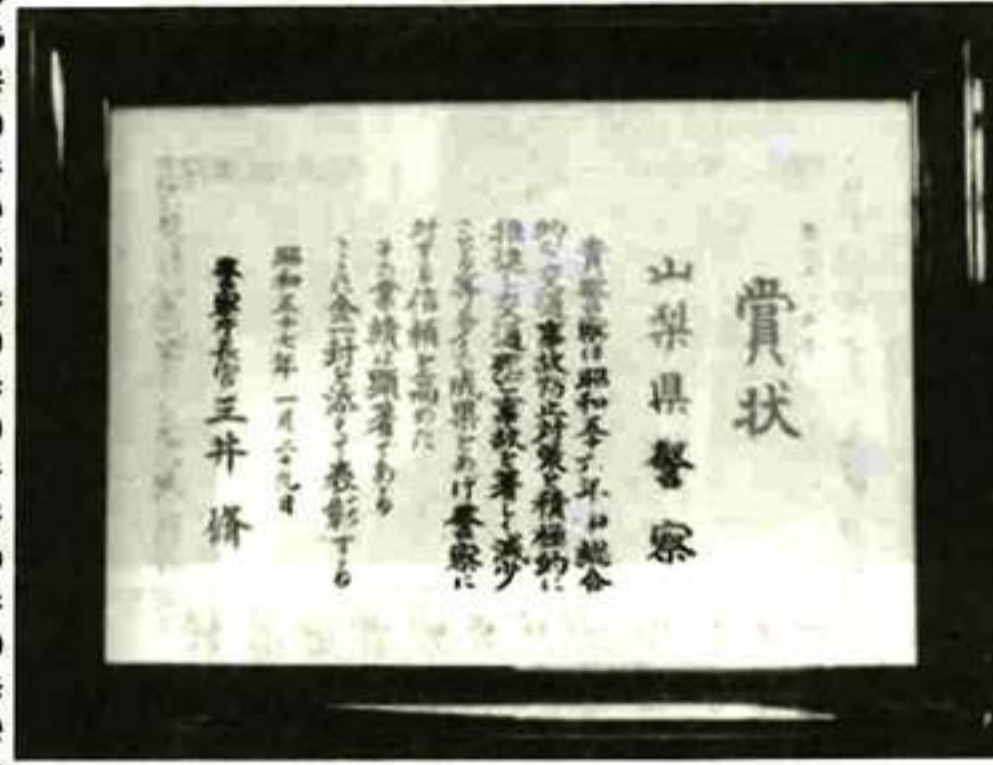 賞状
山梨県警察
貴警察は昭和五十六年中総合
的な交通事故防止対策を積極的に
推進し交通死亡事故を著しく減少
させる等多くの成果をあげ警察に
対する信頼を高めた
その業績は顕著である
ここに金一封を添えて表彰する
昭和五十七年一月二十九日
警察庁長官三井脩